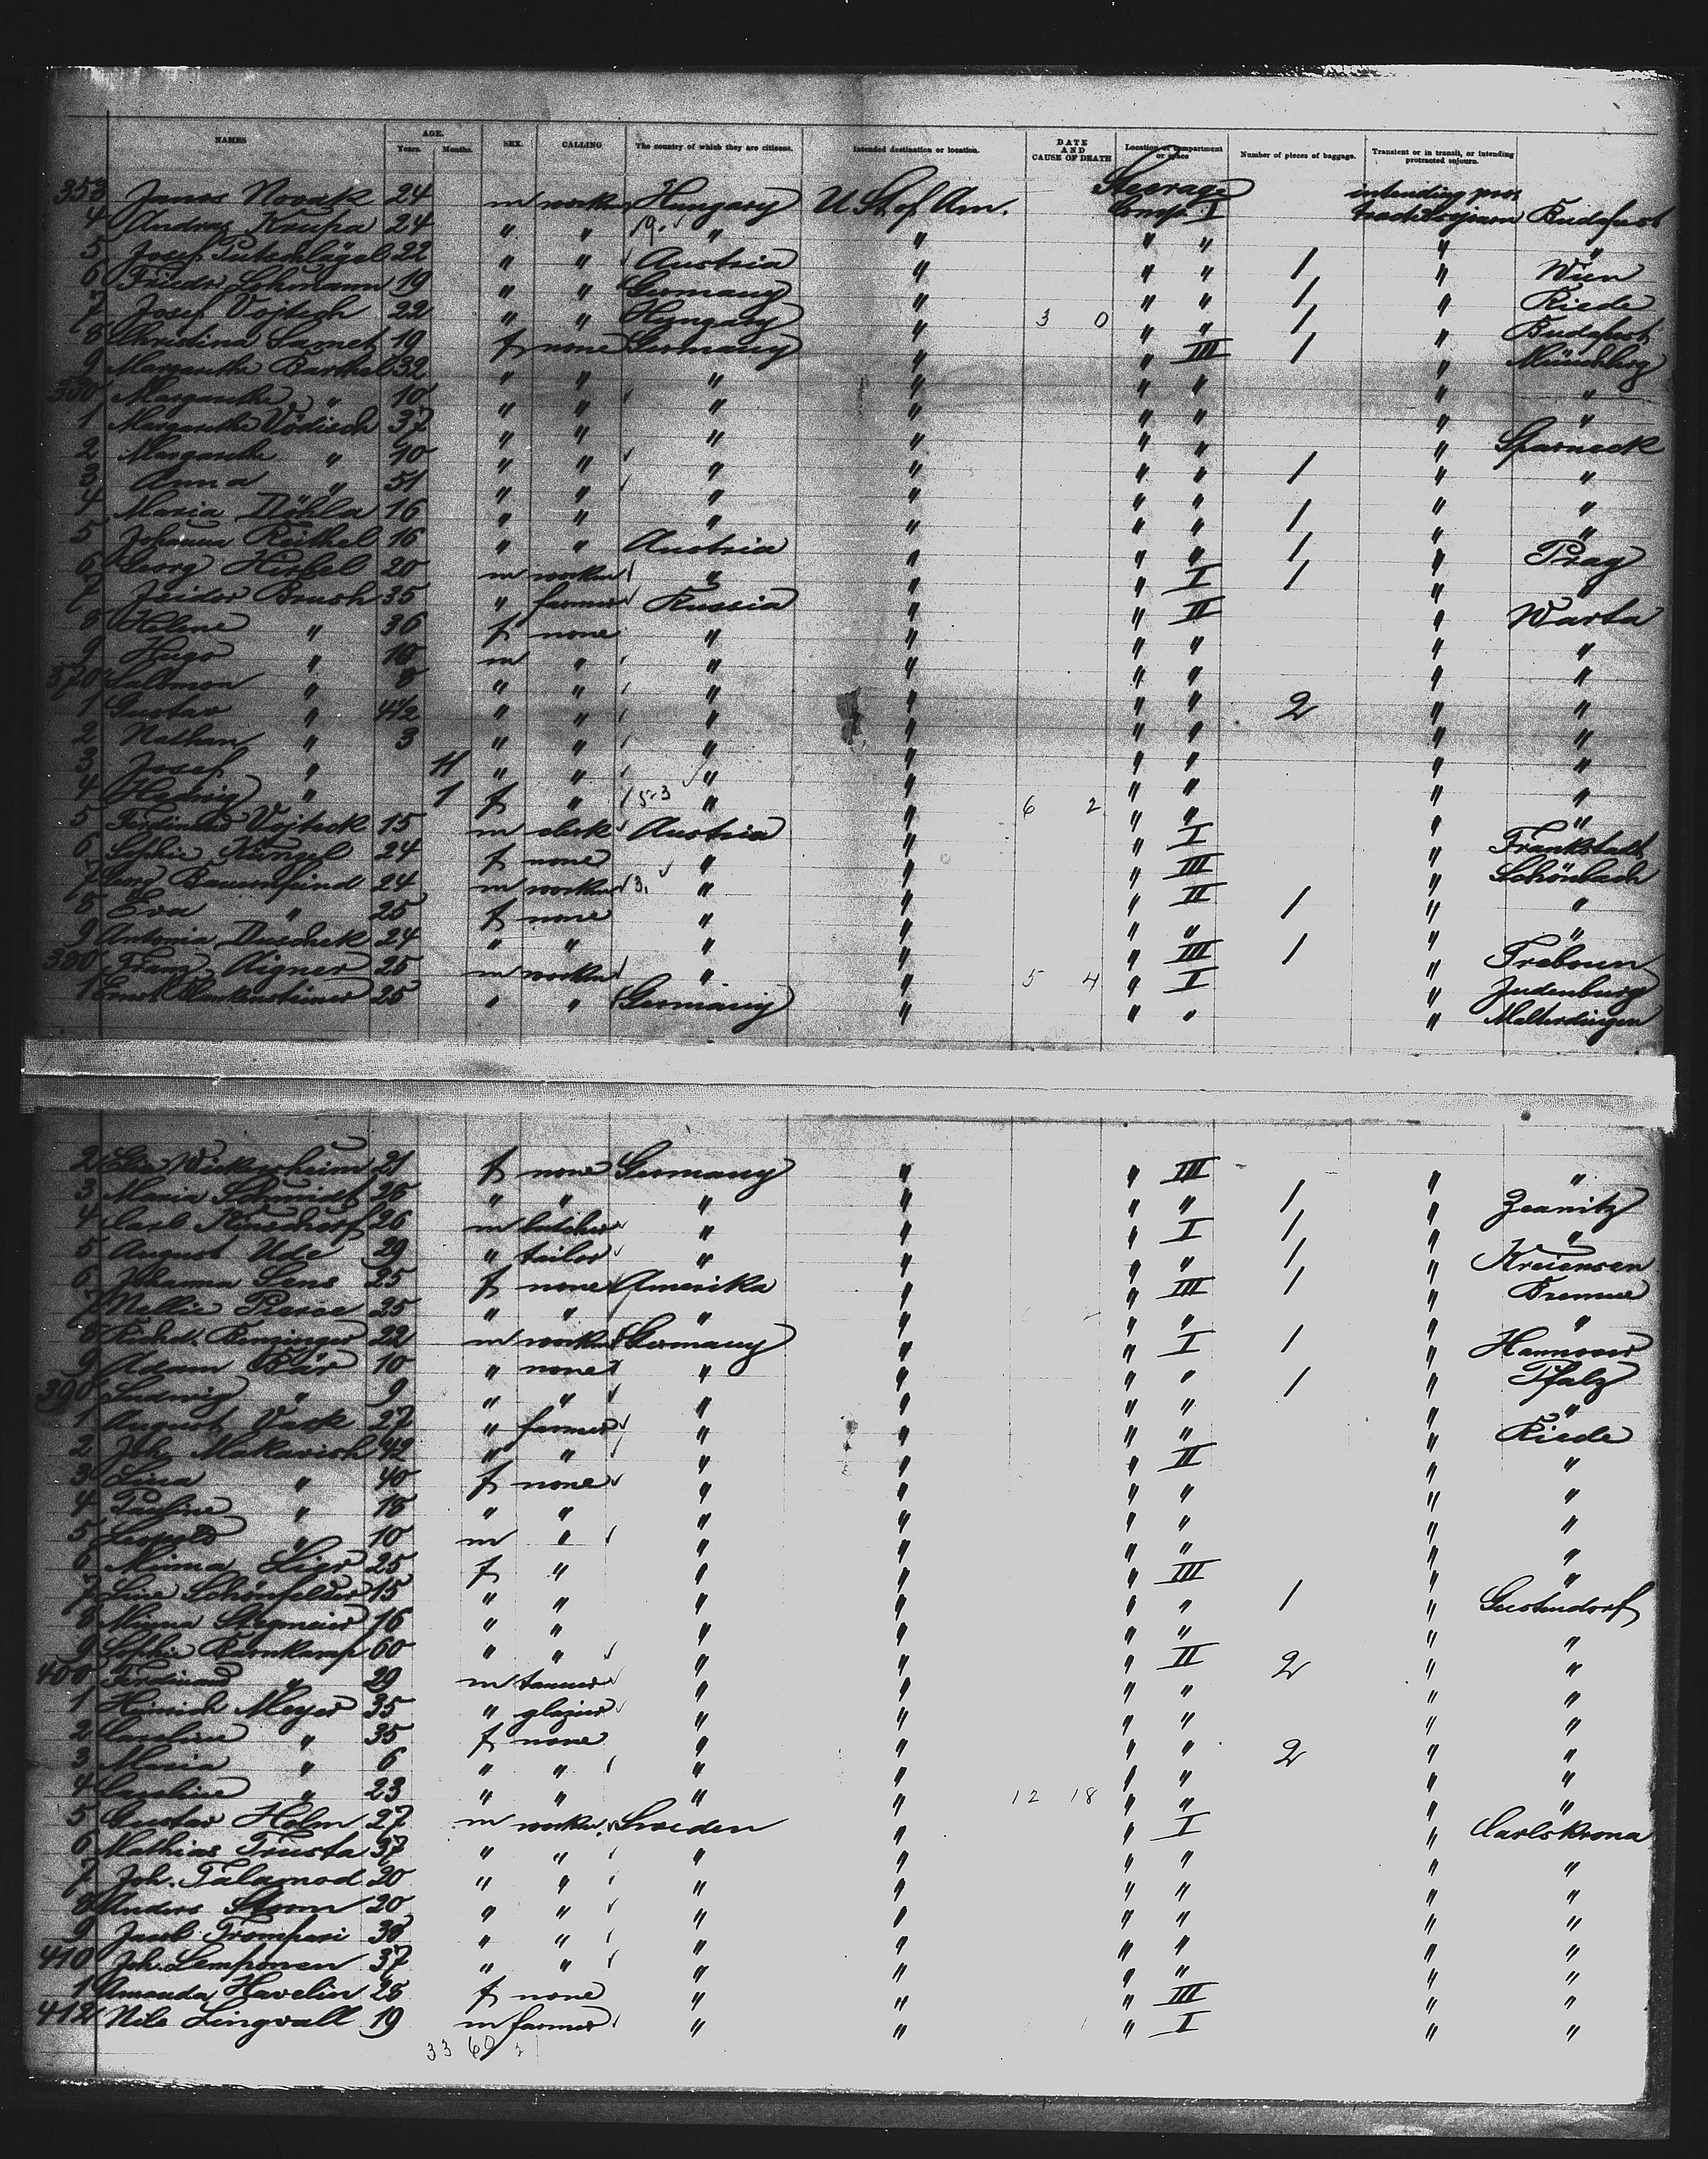 NAMES AGE. Years. Months. SEX. CALLING The country of which they are citizens. Intended destination or location. DATE AND CAUSE OF DEATH Location or compartment or space Number of pieces of baggage. Transient or in transit, or intending protracted sojourn.
353 Janos Novak 24 m worker Hungary U. St. of Am. Steerage Comp. I intending protracted sojourn Budapest
4 Andras Krupa 24 " " " " " " " "
5 Josef 22 " " Austria " " " 1 " Wien
6 19 " " Germany " " " 1 " Riede
7 Josef Vojtech 22 " " Hungary " 3 0 " " 1 " Budapest
8 Christina Samet 19 f none Germany " " III 1 " Münchberg
9 Margarethe Barthel 32 " " " " " " " "
360 Margarethe " 10 " " " " " " " "
1 Margarethe Vödisch 37 " " " " " " " Sparneck
2 Margarethe " 10 " " " " " " 1 " "
3 Anna " 51 " " " " " " " "
4 Maria Döhla 16 " " " " " " 1 " "
5 Johanna Reithel 16 " " Austria " " " 1 " Prag
6 Georg 20 m worker " " " I 1 "
7 Isidor Brush 35 " farmer Russia " " II " Warta
8 Helene " 36 f none " " " " " "
9 Hugo " 10 m " " " " " " "
370 Salomon " 8 " " " " " " " "
1 Gustav " 4½ " " " " " " 2 " "
2 Nathan " 3 " " " " " " " "
3 Josef " 11 " " " " " " " "
4 Hedwig " 1 f " " " 6 2 " " " "
5 Ferdinand Vojteck 15 m clerk Austria " " I " Frankstadt
6 Sophie Künzel 24 f none " " " III " Schönbach
7 Georg Bauernfeind 24 m worker " " " II 1 " "
8 Eva " 25 f none " " " " " "
9 Antonia Duschek 24 " " " " " III 1 " Treboun
380 Franz Aigner 25 m worker " " 5 4 " I " Judenburg
1 Ernst Blankensteiner 25 " " Germany " " " " Malterdingen
2 Elise Wickersheim 21 f none Germany " " III " "
3 Maria Schmidt 26 " " " " " " 1 " Jeanitz
4 Carl 26 m butcher " " " I 1 " "
5 August Ude 29 " tailor " " " " 1 " Kreiensen
6 Johanna Sens 25 f none Amerika " " III 1 " Bremen
7 Nellie Pierce 25 " " " " " " " "
8 Benzinger 22 m worker Germany " " I 1 " Hannover
9 Adam Bär 10 " none " " " " 1 " Pfalz
390 Ludwig " 9 " " " " " " " "
1 August Vack 27 " farmer " " " " " Riede
2 Joh. Makarish 42 " " " " " II " "
3 Lina " 40 f none " " " " " "
4 Pauline " 18 " " " " " " " "
5 Leopold " 10 m " " " " " " "
6 Minna 25 f " " " " III " "
7 Line Schönfelder 15 " " " " " " 1 " Geestendorf
8 Minna Stegmeier 16 " " " " " " " "
9 Sophie Barnkamp 60 " " " " " II 2 " "
400 Ferdinand " 29 m tanner " " " " " "
1 Heinrich Meyer 35 " glazier " " " " " "
2 Caroline " 35 f none " " " " 2 " "
3 Maria " 6 " " " " " " " "
4 Caroline " 23 " " " " 12 18 " " " "
5 Gustav Holm 27 m worker Sweden " " I " Carlskrona
6 Mathias Trusta 37 " " " " " " " "
7 Joh. Talamod 20 " " " " " " " "
8 Anders Storm 20 " " " " " " " "
9 Jacob Trompari 38 " " " " " " " "
410 Joh. Lemponen 37 " " " " " " " "
1 Amanda Havelin 28 f none " " " III " "
412 Nils Lingvall 19 m farmer " " " I " "
33 60